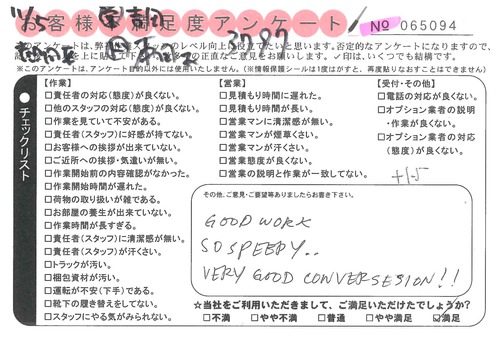 お客様満足度アンケート
No 065094
11/5
3797
このアンケートは、弊社
のレベル向上に役立てたいと思います。否定的なアンケートになりますので、
正直なご意見をお願いします。✓印は、いくつでも結構です。
※このアンケートは、アンケート目的以外には使用いたしません。(※情報保護シールは1度はがすと、再度貼りなおすことはできません。)
●チェックリスト
【作業】
□責任者の対応(態度)が良くない。
□他のスタッフの対応(態度)が良くない。
□作業を見ていて不安がある。
□責任者(スタッフ)に好感が持てない。
□お客様への挨拶が出来ていない。
□ご近所への挨拶・気遣いが無い。
□作業開始前の内容確認がなかった。
□作業開始時間が遅れた。
□荷物の取り扱いが雑である。
□お部屋の養生が出来ていない。
□作業時間が長すぎる。
□責任者(スタッフ)に清潔感が無い。
□責任者(スタッフ)が汗くさい。
□トラックが汚い。
□梱包資材が汚い。
□運転が不安(下手)である。
□靴下の履き替えをしてない。
□スタッフにやる気がみられない。
【営業】
□見積もり時間に遅れた。
□見積もり時間が長い。
□営業マンに清潔感が無い。
□営業マンが煙草くさい。
□営業マンが汗くさい。
□営業態度が良くない。
□営業の説明と作業が一致してない。
【受付・その他】
□電話の対応が良くない。
□オプション業者の説明
・作業が良くない。
□オプション業者の対応
(態度)が良くない。
その他、ご意見・ご要望等ありましたらお書き下さい。
GOOD WORK
SO SPEEDY..
VERY GOOD CONVERSESION!!
☆当社をご利用いただきまして、ご満足いただけたでしょうか?
□不満 □やや不満 □普通 □やや満足 ☑満足